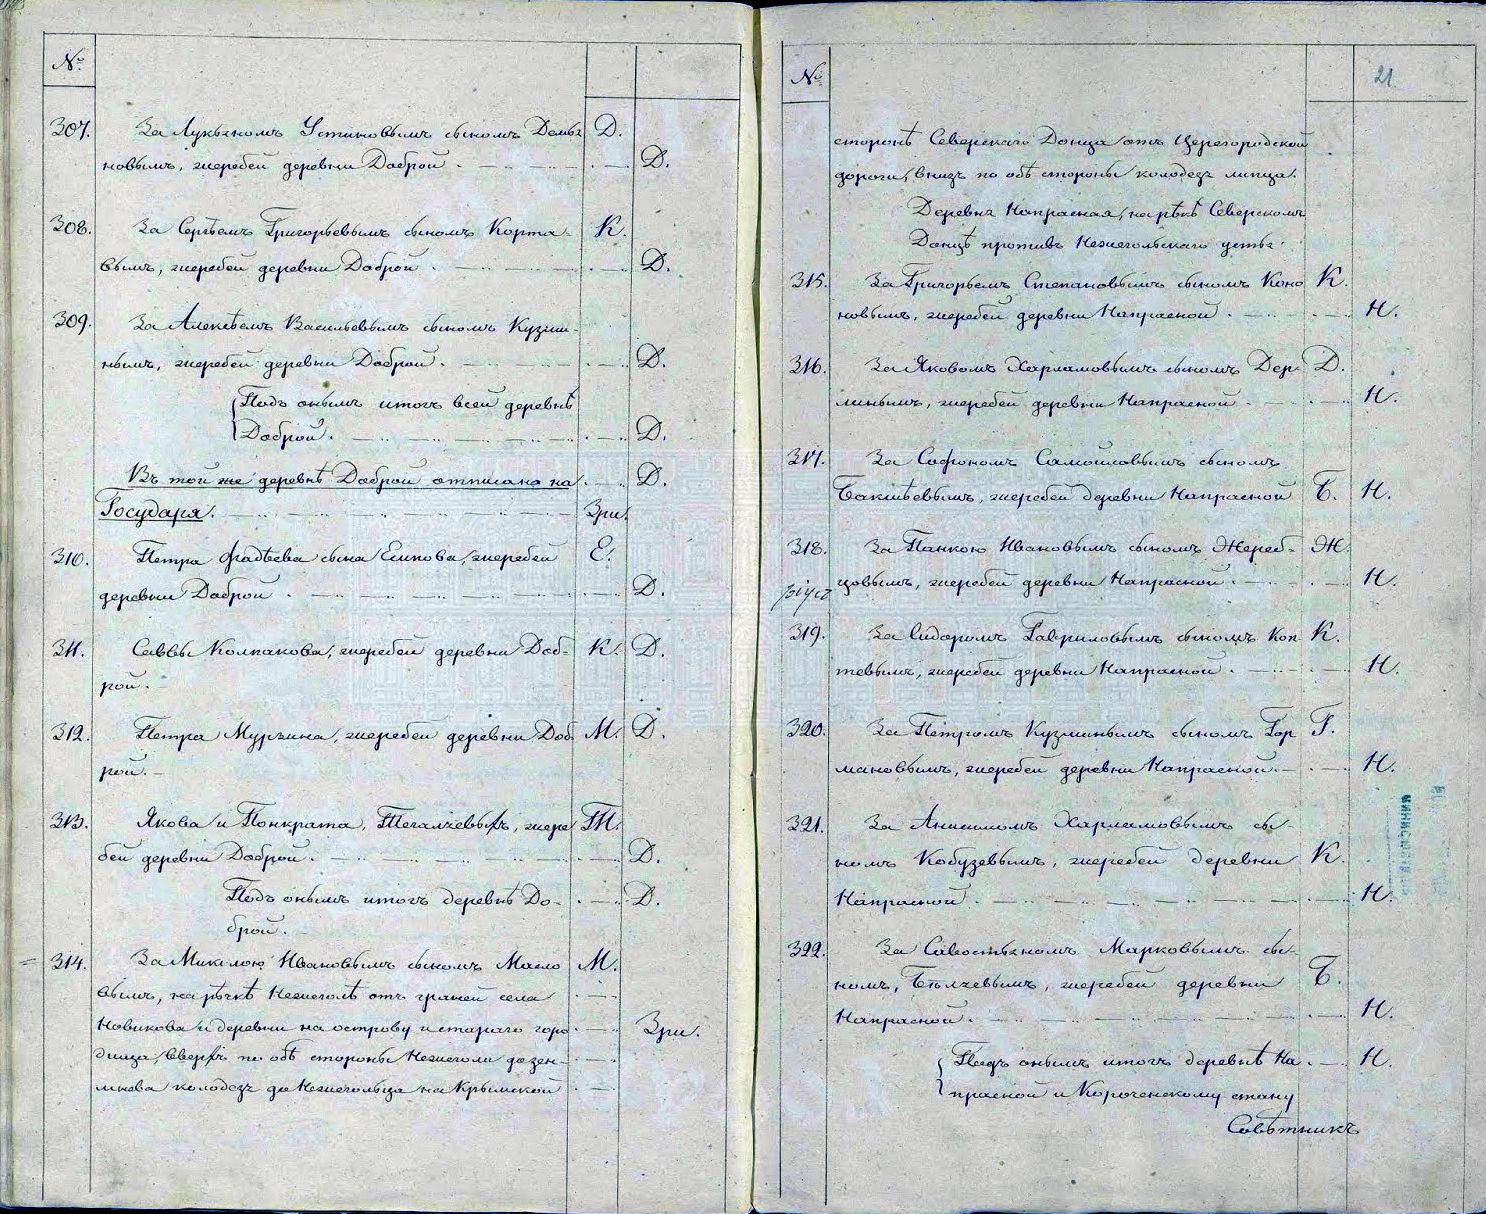 №
307. За Лукьяномъ Устиновымъ сыномъ Демья Д.
новымъ, жеребей деревни Доброй. Д.
308. За Сергѣемъ Григорьевымъ сыномъ Корта- К.
вымъ, жеребей деревни Доброй. Д.
309. За Алексѣемъ Васильевымъ сыномъ Кузми-
нымъ, жеребей деревни Доброй. Д.
Подъ онымъ итогъ всей деревнѣ
Доброй. Д.
Въ той же деревнѣ Доброй отписано на Д.
Государя. Зри.
310. Петра Фадѣева сына Еипова, жеребей Е.
деревни Доброй Д.
311. Саввы Колпакова, жеребей деревни Доб- К. Д.
рой.
312. Петра Мурзина, жеребей деревни Доб М. Д.
рой.
313. Якова и Понкрата, Тегалчевыхъ, жере Т.
бей деревни Доброй. Д.
Подъ онымъ итогъ деревнѣ До- Д.
брой.
314. За Микилою Ивановымъ сыномъ Масло М.
вымъ, на рѣчкѣ Нежеголѣ отъ граней села
Новикова и деревни на острову и стараго горо Зри.
дища, вверхъ по обѣ стороны Нежеголи до зем-
лкова колодезя до Нежегольца на Крымской
№ 21
сторонѣ Северскаго Донца отъ Церегородской
дороги, внизъ по обѣ стороны колодезя липца.
Деревня Напрасная, на рѣкѣ Северскомъ
Донцѣ противъ Нежегольскаго устья.
315. За Григорьемъ Степановымъ сыномъ Коно К.
новымъ, жеребей деревни Напрасной. Н.
316. За Яковомъ Харламовымъ сыномъ Дер- Д.
линымъ, жеребей деревни Напрасной. Н.
317. За Софономъ Самойловымъ сыномъ
Бакшѣевымъ, жеребей деревни Напрасной Б. Н.
318. За Панкою Ивановымъ сыномъ Жереб- Ж.
цовымъ, жеребей деревни Напрасной. Н.
319. За Сидоромъ Гавриловымъ сыномъ Коп К.
тевымъ, жеребей деревни Напрасной. Н.
320. За Петромъ Кузминымъ сыномъ Гор Г.
мановымъ, жеребей деревни Напрасной. Н.
321. За Анисимомъ Харламовымъ сы-
номъ Кобузевымъ, жеребей деревни К.
Напрасной. Н.
322. За Савостьяномъ Марковымъ сы-
номъ, Бѣлчевымъ, жеребей деревни Б.
Напрасной. Н.
Подъ онымъ итогъ деревнѣ На Н.
прасной и Короченскому стану
Совѣтникъ